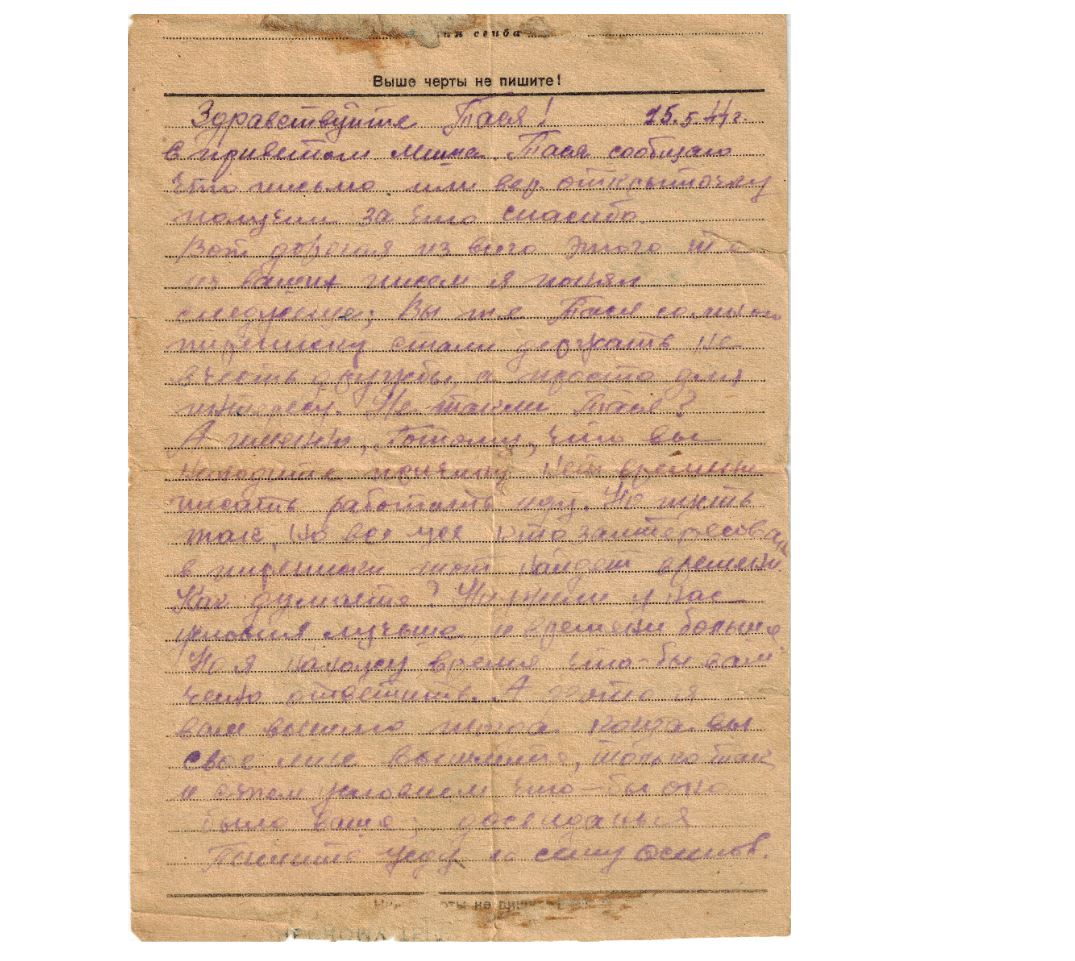 Выше черты не пишите!
Здравствуйте Тася! 25.5.44г.
с приветом Миша. Тася сообщаю
что письмо или вер. открыточку
получил за что спасибо
Вот дорогая из всего этого
из ваших писем я понял
следующие; Вы же Тася со мной
переписку стали держать не
в честь дружбы, а просто для
интересу. Не так ли Тася?
А именно, потому, что вы
находите причину нет времени
писать работать иду. Но пусть
так, но все же кто заинтересован
в переписки тот найдет времени.
Как думаете? Нежели у вас
условия лучьше и времени больше
Но я нахожу время что-бы вам
ответить. А фото я
вам вышлю тогда когда вы
свое мне вышлите, только так
и с этем условием что-бы оно
было ваше; досвиданья
Пишите жду к сему Осипов.
черты не пиши